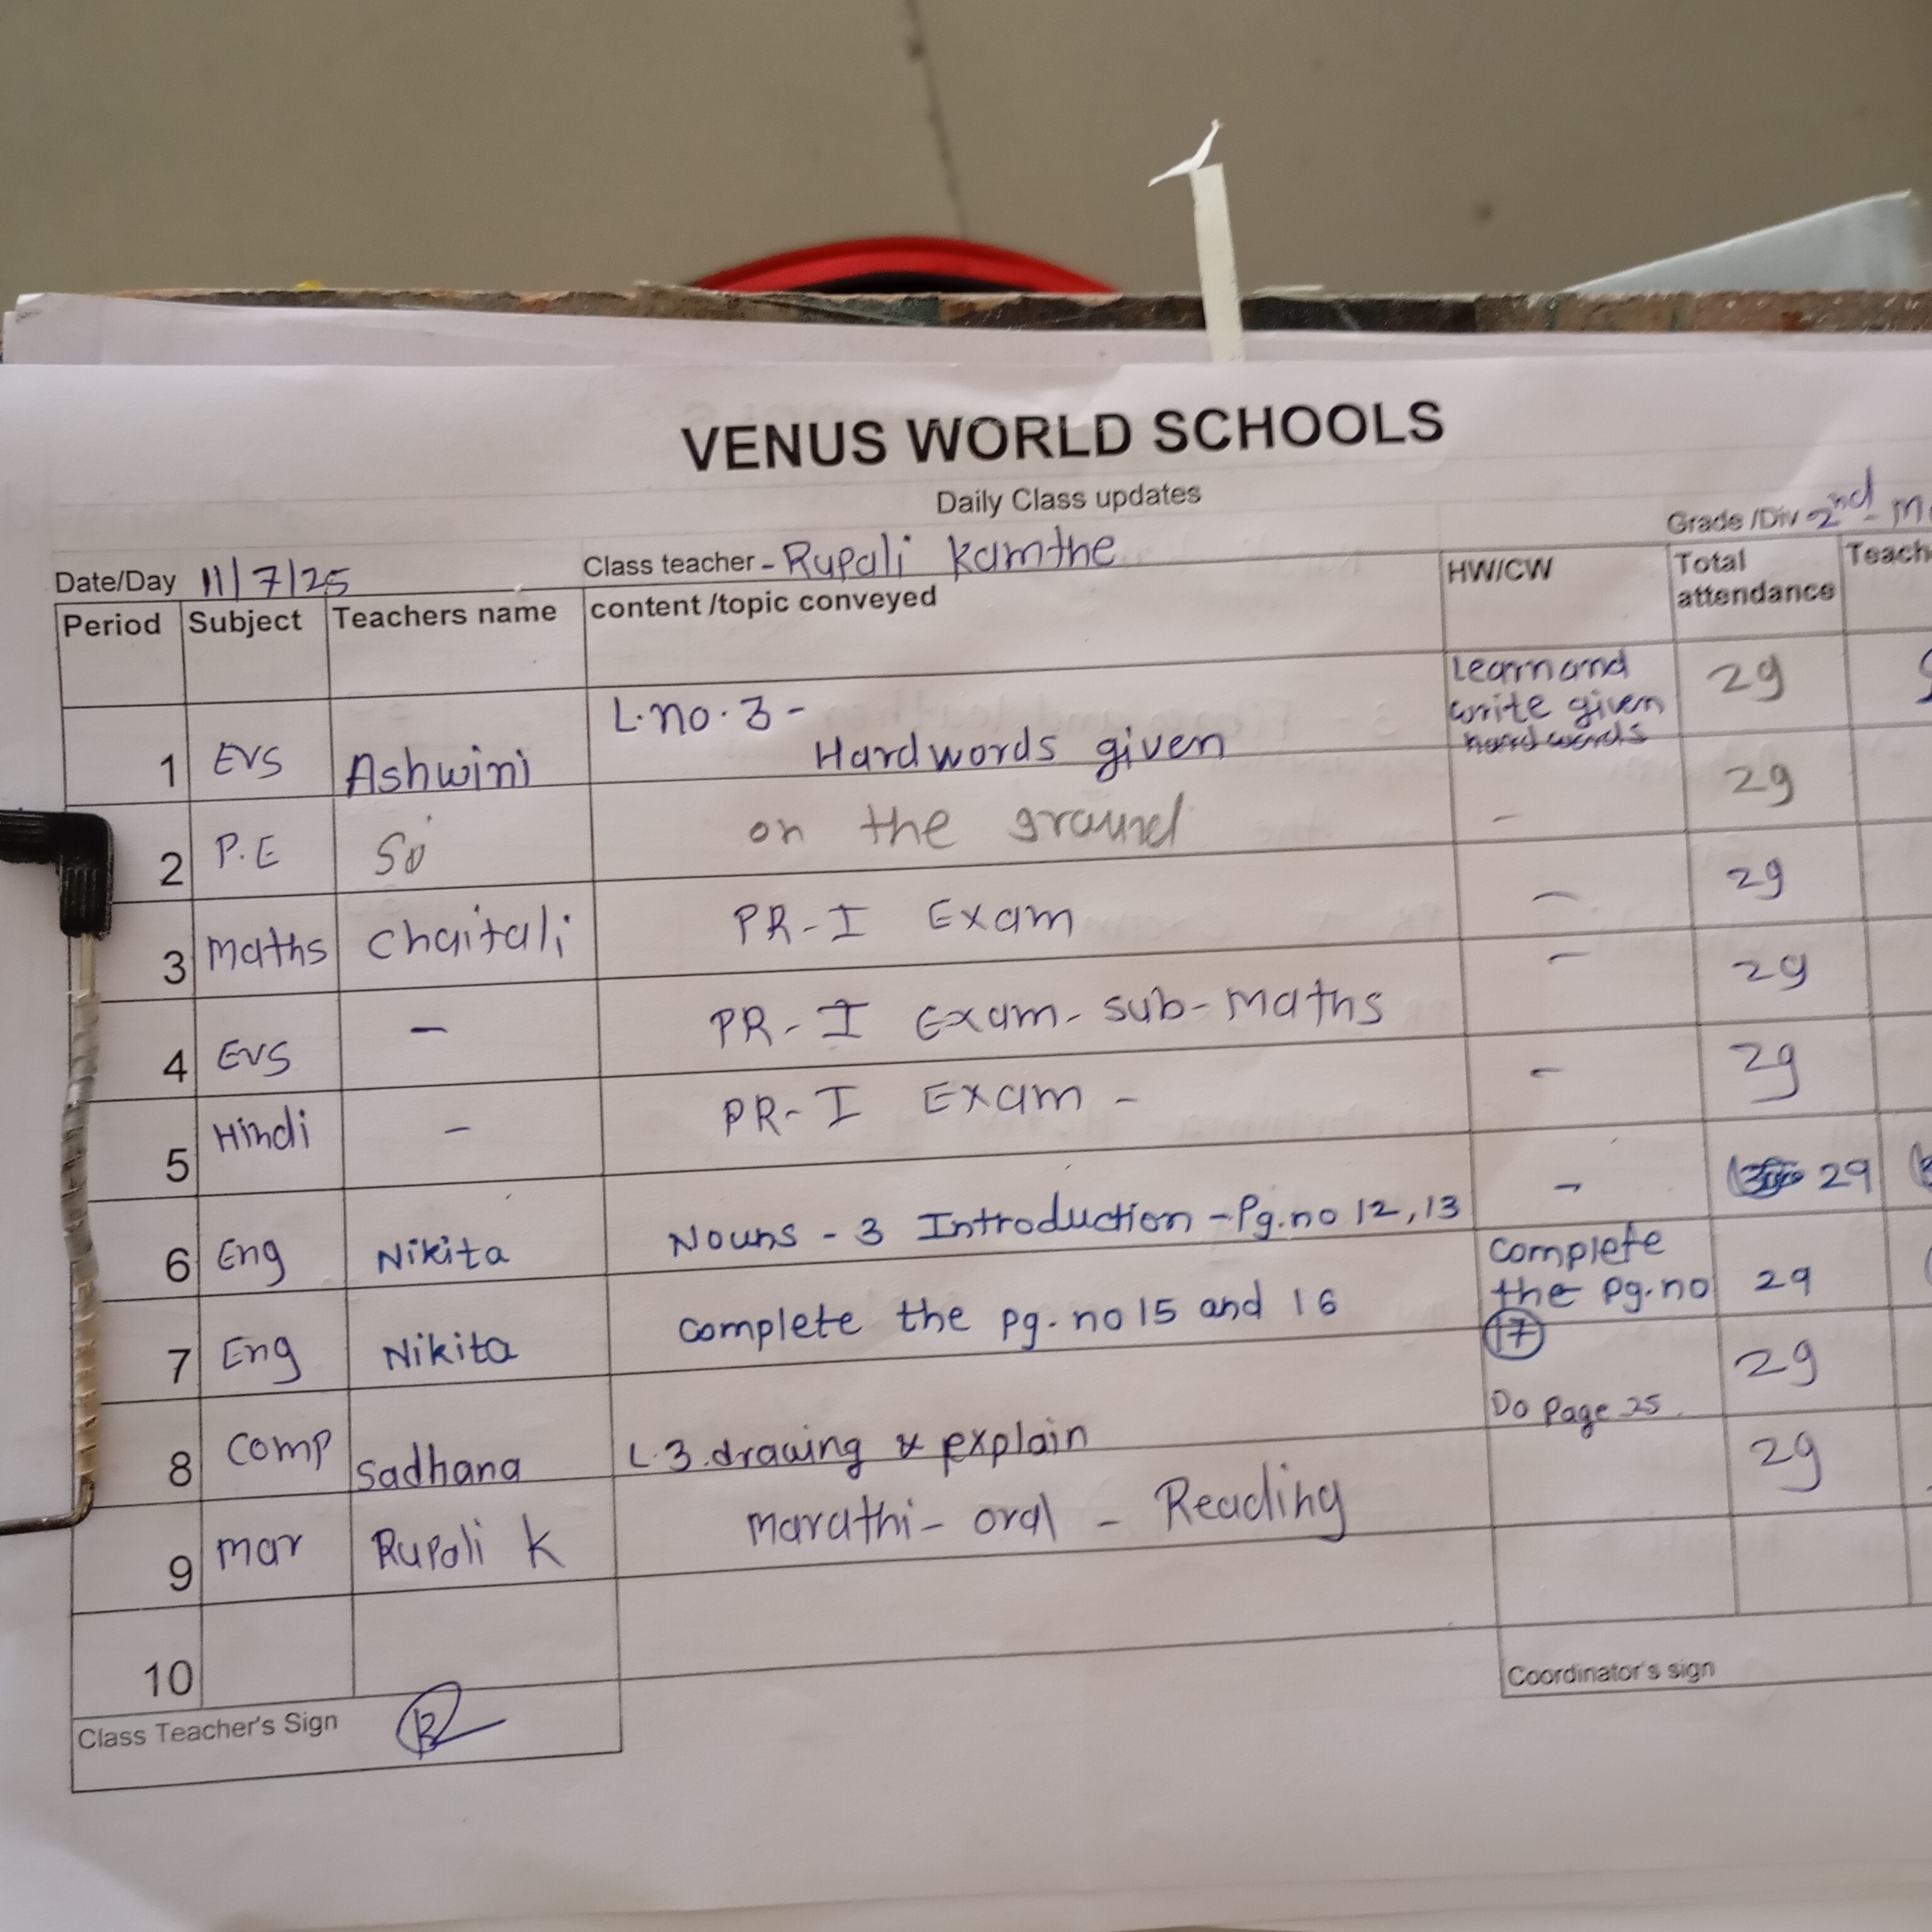 VENUS WORLD SCHOOLS
Daily Class updates
Grade /Div 2nd - M
Date/Day 11/7/25 Class teacher - Rupali Kamthe
Period Subject Teachers name content /topic conveyed HW/CW Total attendance Teach
1 EVS Ashwini L.no.3 - Hardwords given Learn and write given hard words 29
2 P.E on the ground - 29
3 Maths Chaitali PR-I Exam - 29
4 EVS - PR-I Exam - sub - Maths - 29
5 Hindi - PR-I Exam - - 29
6 Eng Nikita Nouns - 3 Introduction - Pg.no 12,13 - 29
7 Eng Nikita complete the pg.no 15 and 16 complete the pg.no 17 29
8 Comp Sadhana L.3.drawing & explain Do Page 25. 29
9 Mar Rupali K Marathi - oral - Reading 29
10
Class Teacher's Sign
Coordinator's sign